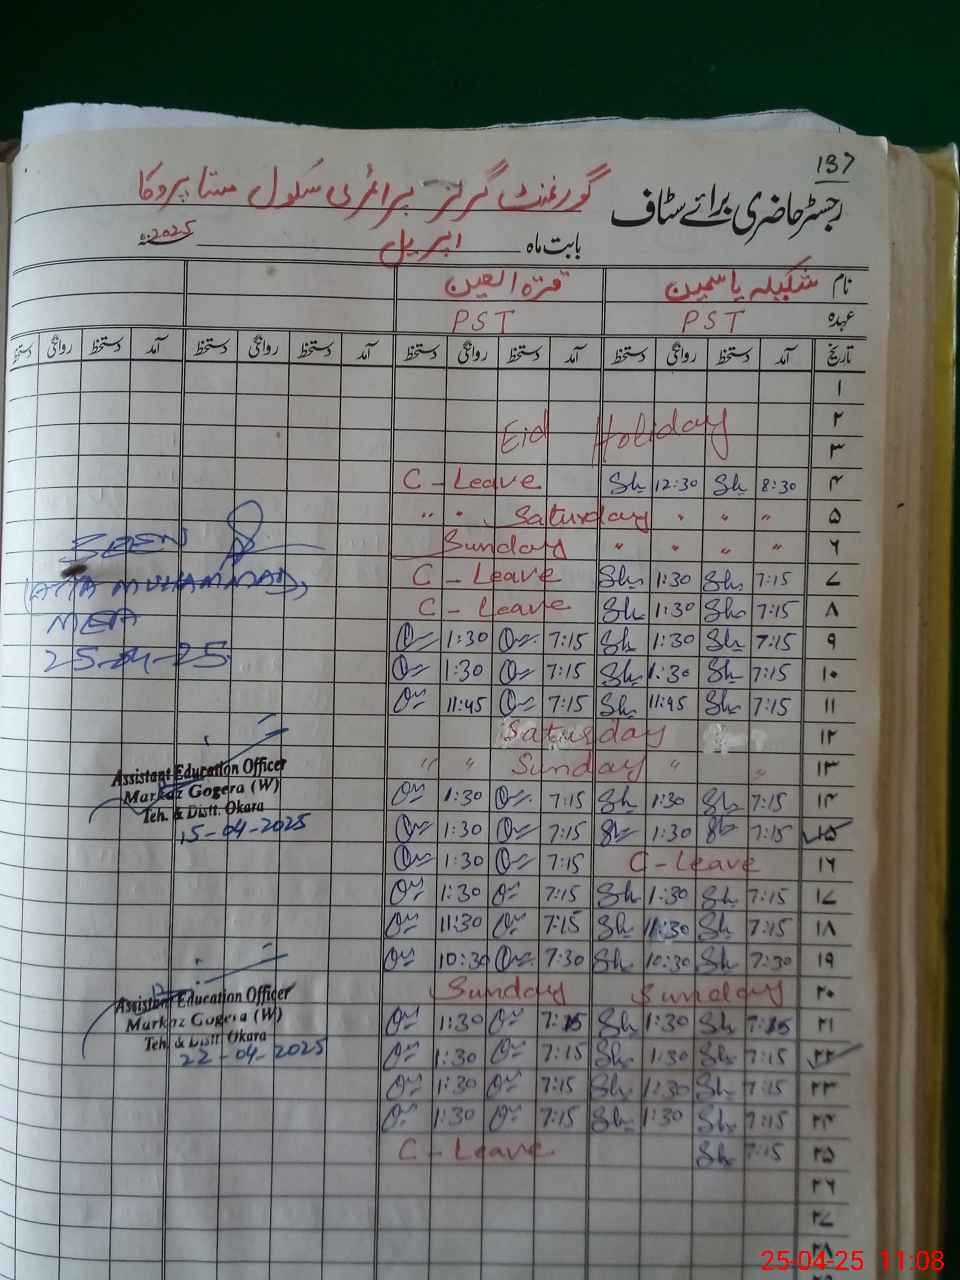 137
رجسٹر حاضری برائے سٹاف گورنمنٹ گرلز پرائمری سکول
بابت ماہ اپریل 2025ء
نام شکیلہ یاسمین قرۃ العین
عہدہ PST PST
تاریخ آمد دستخط روانگی دستخط آمد دستخط روانگی دستخط آمد دستخط روانگی دستخط آمد دستخط روانگی دستخط
۱
۲ Eid Holiday
۳
۴ 8:30 Sh 12:30 Sh C-Leave
۵ " " " Saturday " "
۶ " " " " Sunday
۷ 7:15 Sh 1:30 Sh C-Leave
۸ 7:15 Sh 1:30 Sh C-Leave
۹ 7:15 Sh 1:30 Sh 7:15 1:30
۱۰ 7:15 Sh 1:30 Sh 7:15 1:30
۱۱ 7:15 Sh 11:45 Sh 7:15 11:45
۱۲ Saturday
۱۳ " " Sunday " "
۱۴ 7:15 Sh 1:30 Sh 7:15 1:30
۱۵ 7:15 Sh 1:30 Sh 7:15 1:30
۱۶ C-Leave 7:15 1:30
۱۷ 7:15 Sh 1:30 Sh 7:15 1:30
۱۸ 7:15 Sh 11:30 Sh 7:15 11:30
۱۹ 7:30 Sh 10:30 Sh 7:30 10:30
۲۰ Sunday Sunday
۲۱ 7:15 Sh 1:30 Sh 7:15 1:30
۲۲ 7:15 Sh 1:30 Sh 7:15 1:30
۲۳ 7:15 Sh 1:30 Sh 7:15 1:30
۲۴ 7:15 Sh 1:30 Sh 7:15 1:30
۲۵ 7:15 Sh C-Leave
۲۶
۲۷
۲۸
SEEN
(ATTA MUHAMMAD)
MEA
25-04-25
Assistant Education Officer
Markaz Gogera (W)
Teh. & Distt. Okara
15-04-2025
Assistant Education Officer
Markaz Gogera (W)
Teh. & Distt. Okara
22-04-2025
25-04-25 11:08